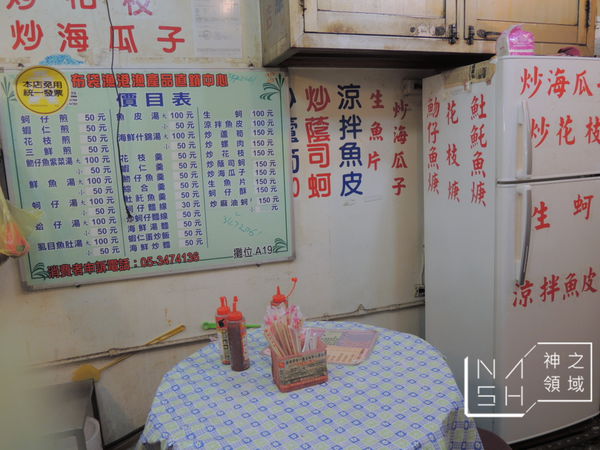 炒花枝
炒海瓜子
本店免用
統一發票
布袋漁港漁產品直銷中心
價目表
蚵仔煎 50元
蝦仁煎 50元
花枝煎 50元
三鮮煎 50元
魩仔魚紫菜湯 大100元
小50元
鮮魚湯 大100元
小50元
蚵仔湯 大100元
小50元
蛤仔湯 大100元
小50元
虱目魚肚湯 大100元
小50元
魚皮湯 大100元
小50元
海鮮什錦湯 大100元
小50元
花枝羹 50元
蝦仁羹 50元
魩仔魚羹 50元
綜合羹 50元
魠魚羹 50元
蚵仔麵線 30元
炒蚵仔麵線 50元
海鮮湯麵 50元
蝦仁蛋炒飯 50元
海鮮炒麵 50元
生蚵 150元
涼拌魚皮 150元
炒蘆筍 150元
炒螺肉 150元
炒花枝 150元
炒蔭司蚵 150元
炒海瓜子 150元
生魚片 150元
炒蚵酥 150元
炒麻油蚵
消費者申訴電話：05-3474136
攤位A19
炒海瓜子
生魚片
涼拌魚皮
炒蔭司蚵
炒海瓜子
炒花枝
魠魚焿
花枝焿
魩仔魚焿
生蚵
涼拌魚皮
NASH
神之領域